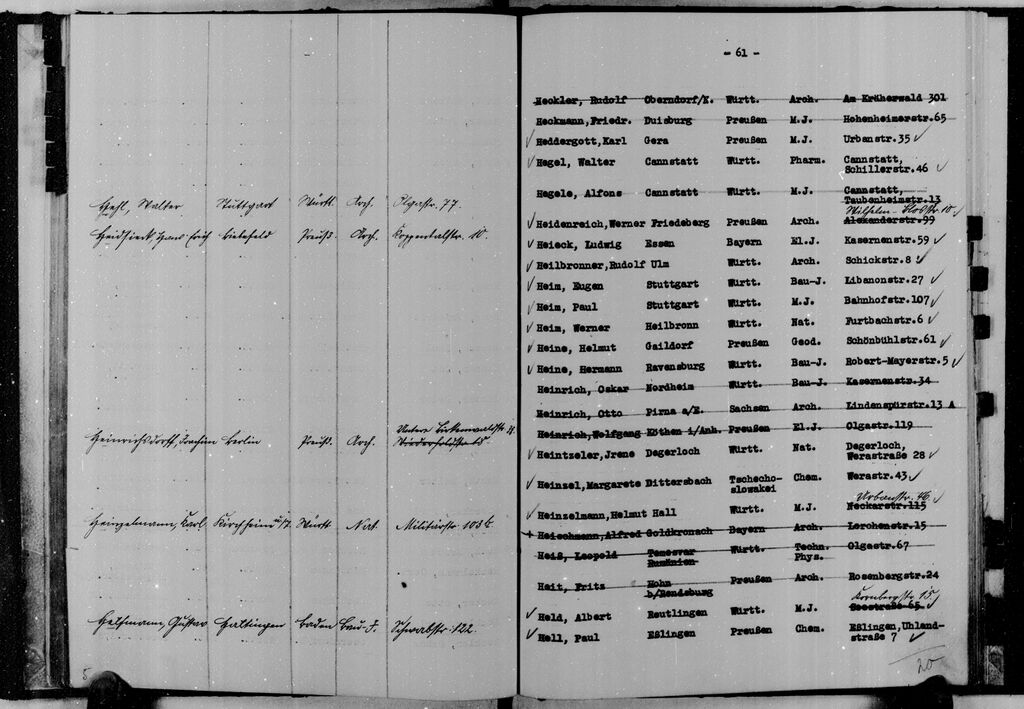 Hehl, Walter Stuttgart Württ. Arch. Olgastr. 77.
Heidsieck, Hans Erich Bielefeld Preuß. Arch. Koppentalstr. 10.
Untere Birkenwaldstr.
Heinrichsdorff, Joachim Berlin Preuß. Arch.
Heinzelmann, Karl Kirchheim u/T. Württ Nat. Militärstr. 103 b.
Helfmann, Gustav Haltingen Baden Bau-J. Schwabstr. 122.
5
- 61 -
Heckler, Rudolf Oberndorf/N. Württ. Arch. Am Kräherwald 301
Heckmann,Friedr. Duisburg Preußen M.J. Hohenheimerstr.65
✓ Heddergott,Karl Gera Preußen M.J. Urbanstr.35 ✓
✓ Hegel, Walter Cannstatt Württ. Pharm. Cannstatt,
Schillerstr.46 ✓
Hegele, Alfons Cannstatt Württ. M.J. Cannstatt,
Taubenheimstr.13
Wilhelm-
✓ Heidenreich,Werner Friedeberg Preußen Arch. Alexanderstr.99
✓ Heieck, Ludwig Essen Bayern El.J. Kasernenstr.59 ✓
✓ Heilbronner,Rudolf Ulm Württ. Arch. Schickstr.8 ✓
✓ Heim, Eugen Stuttgart Württ. Bau-J. Libanonstr.27 ✓
✓ Heim, Paul Stuttgart Württ. M.J. Bahnhofstr.107 ✓
✓ Heim, Werner Heilbronn Württ. Nat. Furtbachstr.6 ✓
✓ Heine, Helmut Gaildorf Preußen Geod. Schönbühlstr.61 ✓
✓ Heine, Hermann Ravensburg Württ. Bau-J. Robert-Mayerstr.5 ✓
Heinrich, Oskar Nordheim Württ. Bau-J. Kasernenstr.34
Heinrich, Otto Pirna a/E. Sachsen Arch. Lindenspürstr.13 A
Heinrich,Wolfgang Köthen i/Anh. Preußen El.J. Olgastr.119
✓ Heintzeler,Jrene Degerloch Württ. Nat. Degerloch,
Werastraße 28 ✓
✓ Heinzel,Margarete Dittersbach Tschecho-
slowakei Chem. Werastr.43 ✓
Urbanstr. 46. ✓
✓ Heinzelmann,Helmut Hall Württ. M.J. Neckarstr.115
+ Heischmann,Alfred Goldkronach Bayern Arch. Lerchenstr.15
Heiß, Leopold Temesvar Württ. Techn. Olgastr.67
Rumänien Phys.
Hait, Fritz Hohn Preußen Arch. Rosenbergstr.24
b/Rendsburg
Kornbergstr. 15. ✓
✓ Held, Albert Reutlingen Württ. M.J. Seestraße 65
✓ Hell, Paul Eßlingen Preußen Chem. Eßlingen,Uhland-
straße 7 ✓
20